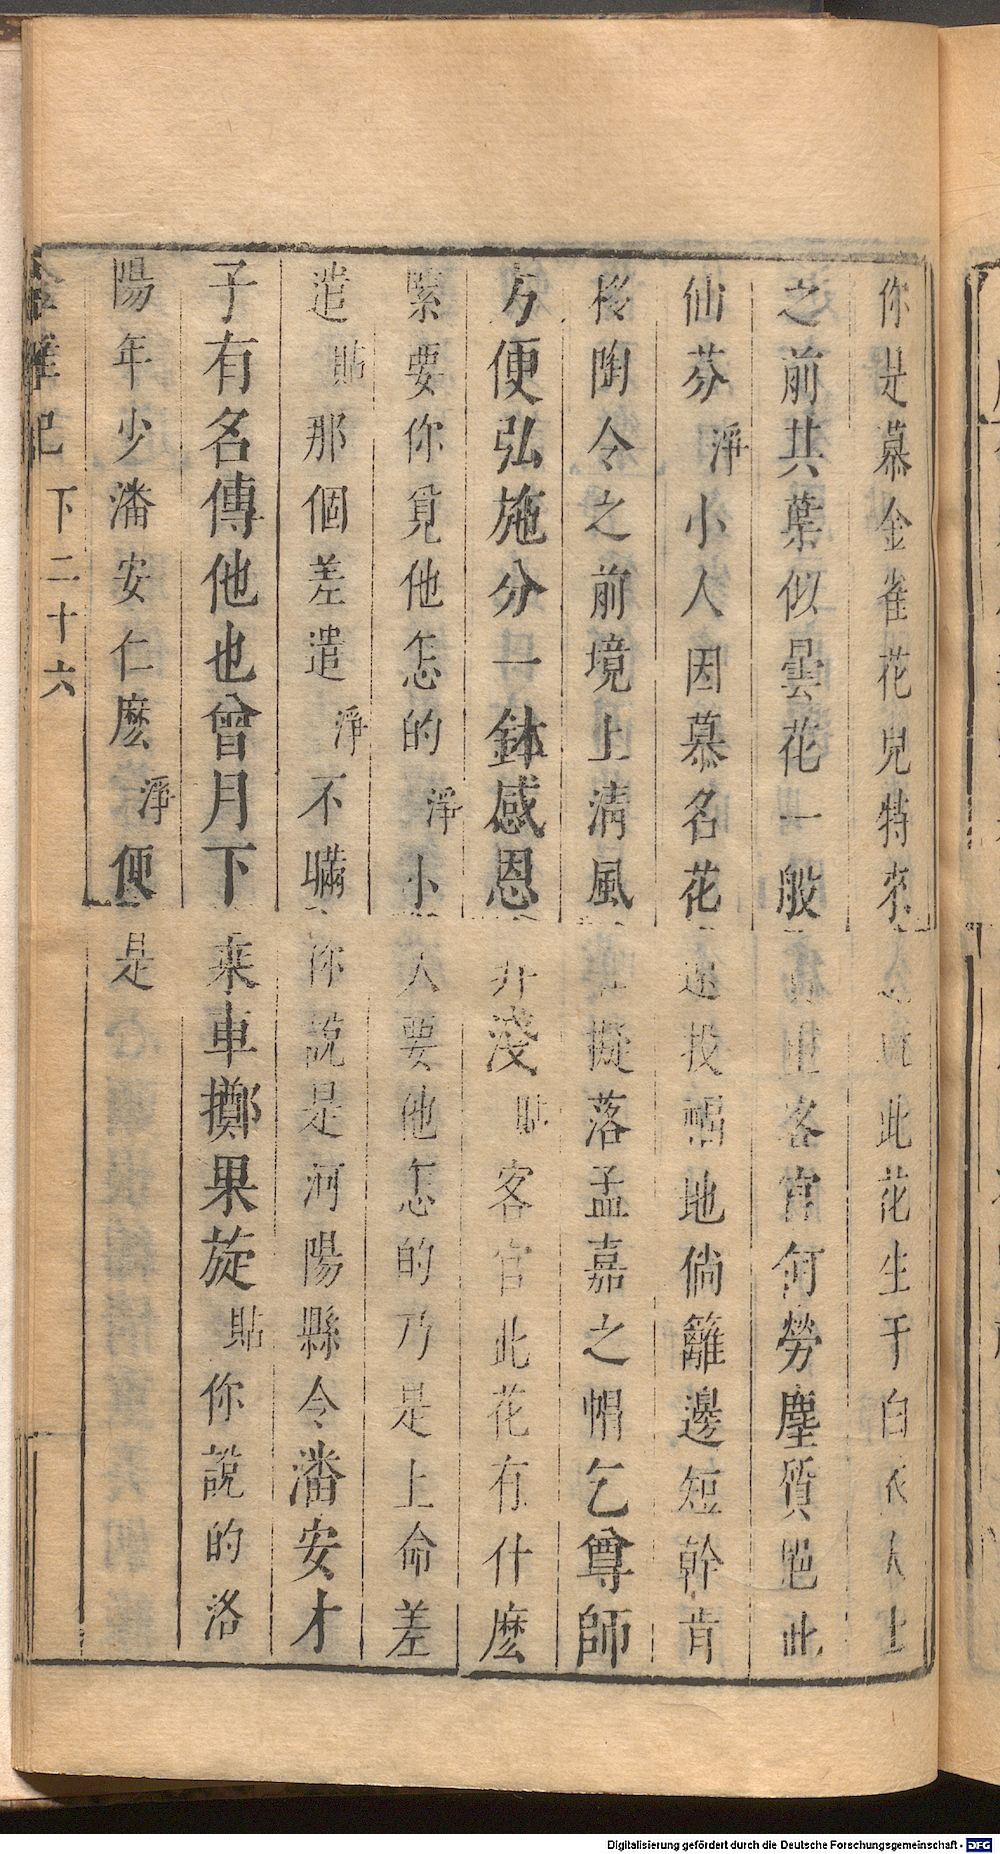 你是慕金雀花兒特來 此花生于白衣人士
之前共葉似曇花一般 客官何勞塵質絕此
仙芬淨小人因慕名花 遠投福地倘籬邊短幹肯
移陶令之前境上清風 擬落孟嘉之帽乞尊師
方便弘施分一鉢感恩非淺貼客官此花有什麽
緊要你覓他怎的淨小人要他怎的乃是上命差
遣貼那個差遣淨不瞞你說是河陽縣令潘安才
子有名傳他也曾月下乘車擲果旋貼你說的洛
陽年少潘安仁麽淨便是
金雀記 下二十六
Digitalisierung gefördert durch die Deutsche Forschungsgemeinschaft - DFG